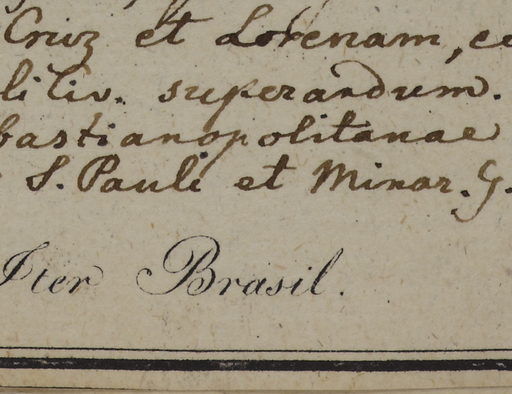 Cruz et Lorenam, e
superandum.
bastianopolitanae
S. Pauli et Minar. G.
Iter Brasil.